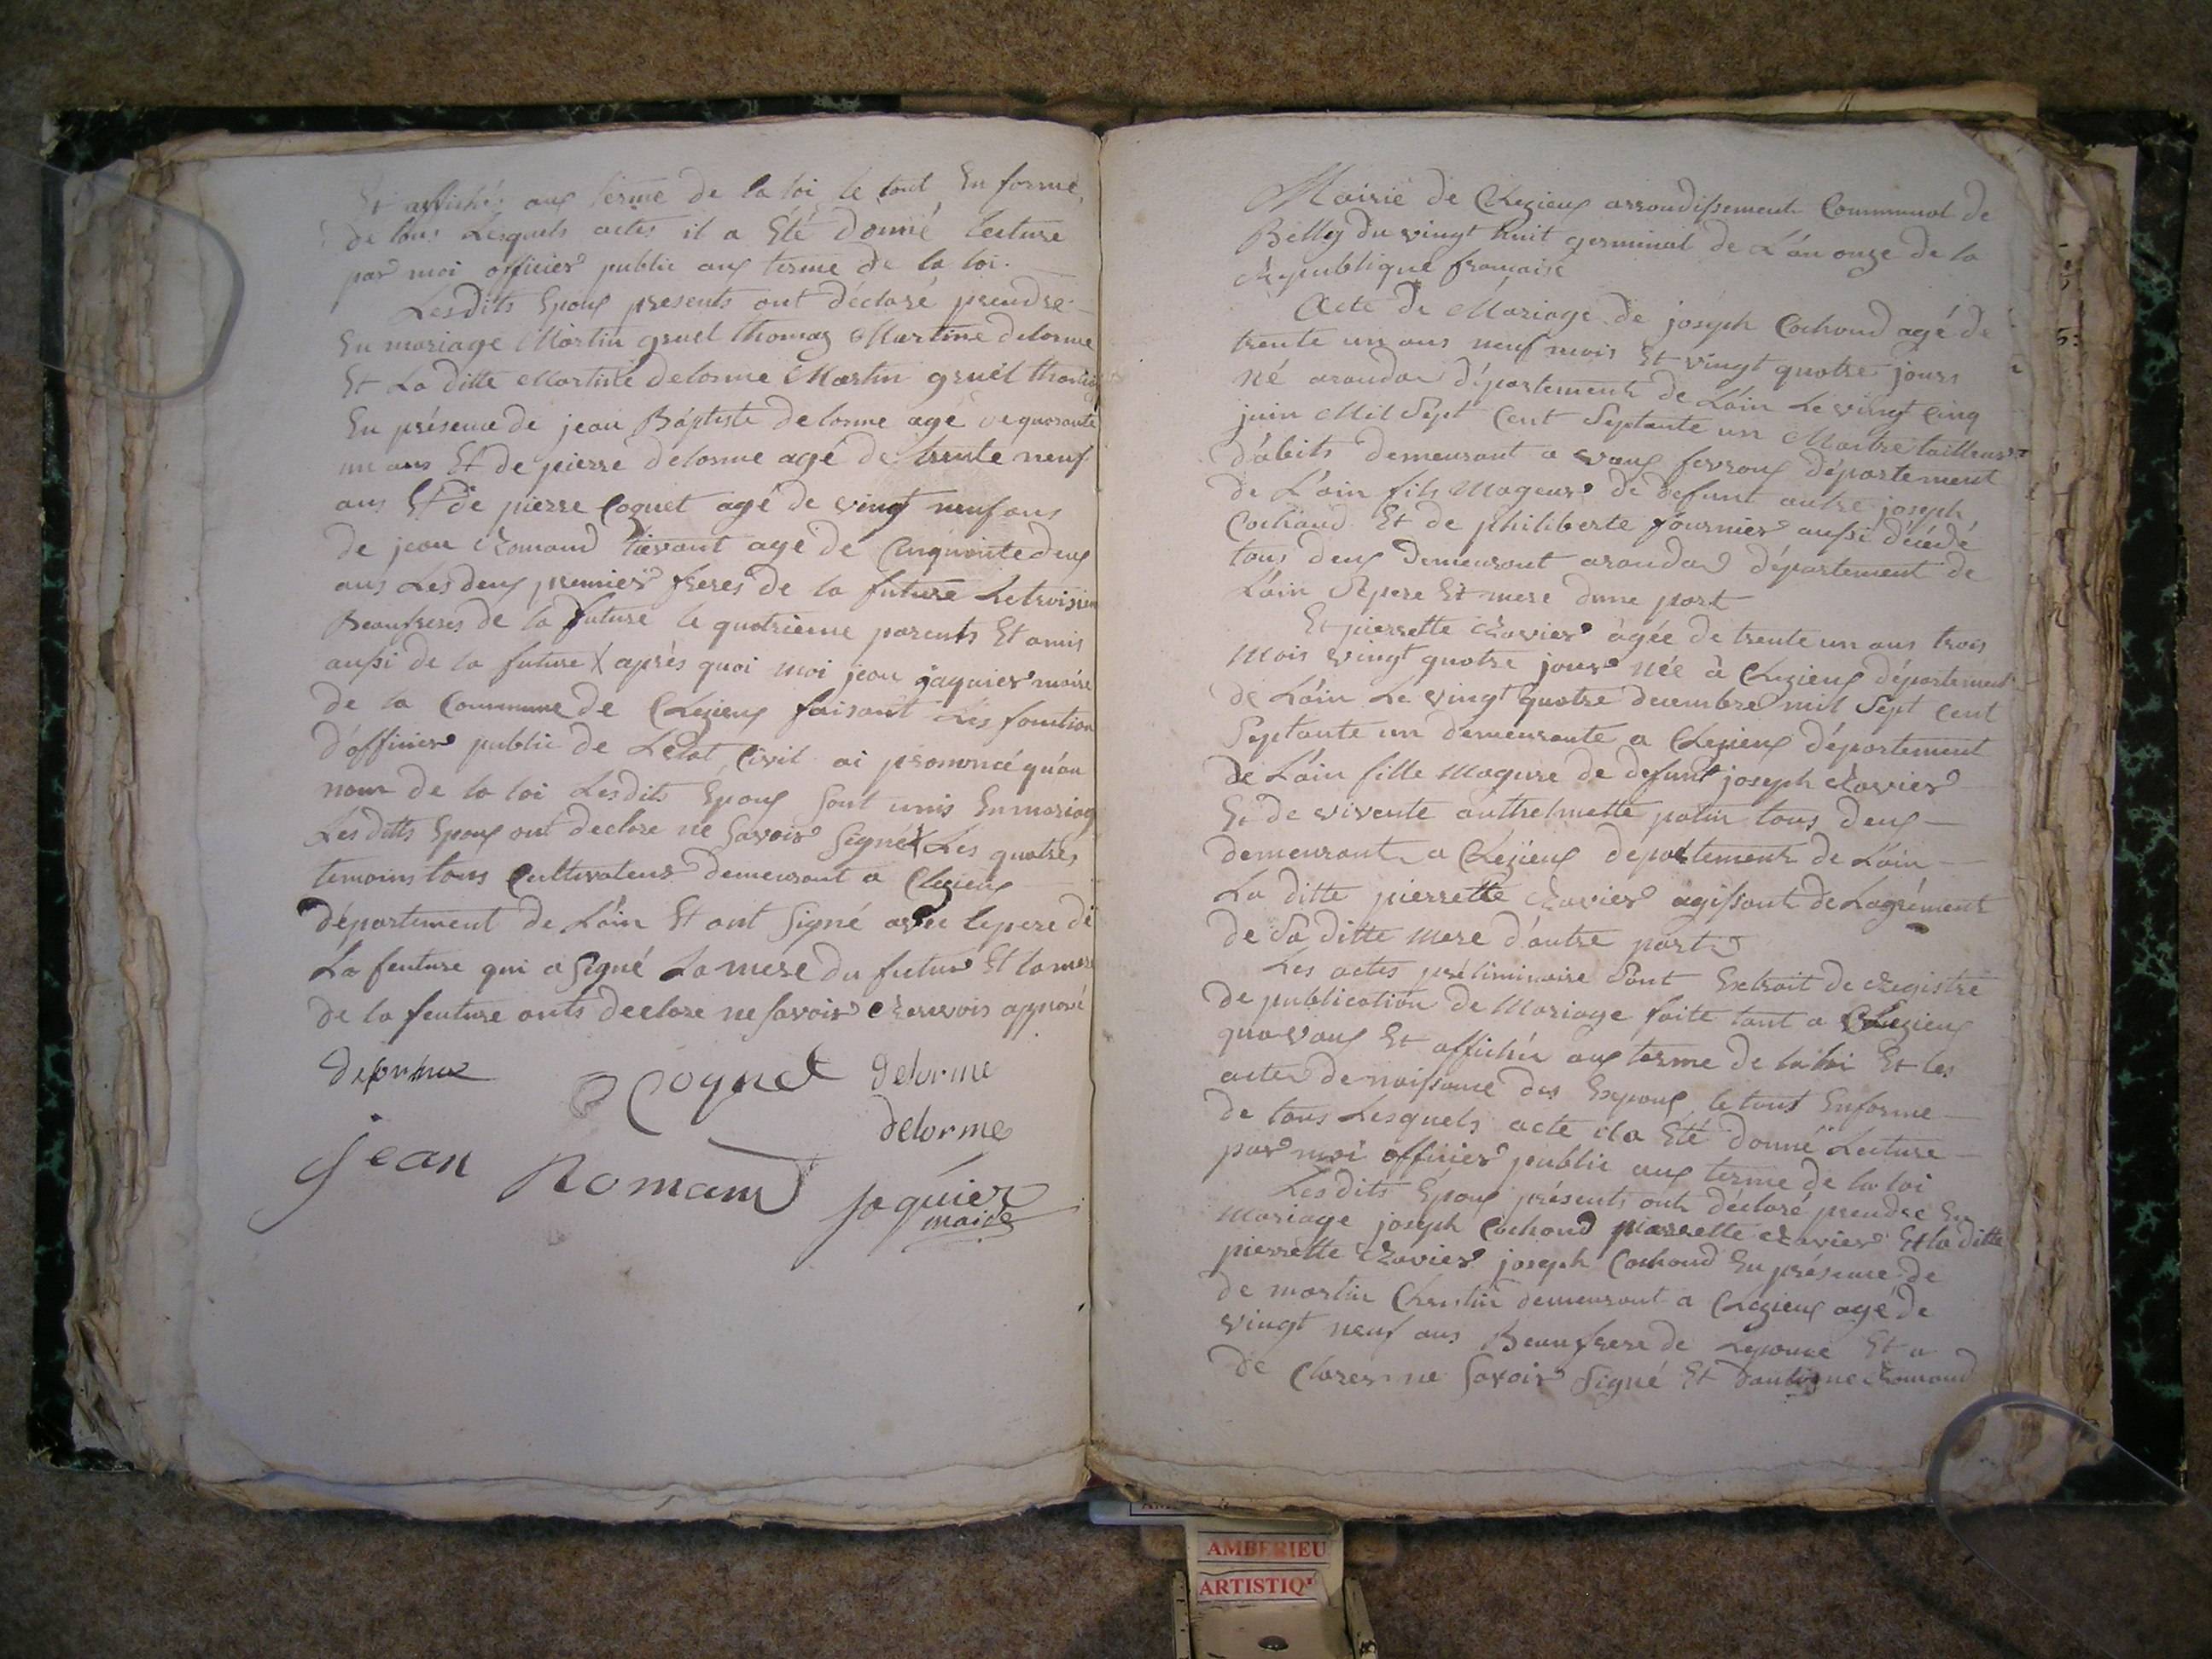 Et affichés aux terme de la loi le tout En forme,
de tous Lesquels actes il a Été donné lecture
par moi officier public aux terme de la loi.
Lesdits Epoux presents ont déclaré prendre
En mariage Martin gruel thomas Martine delorme
Et La ditte Martine delorme Martin gruel thomas
En présence de jean Baptiste delorme agé de quarante
un ans Et de pierre delorme agé de trente neuf
ans Et de pierre Coquet agé de vingt neuf ans
de jean Romand agé de Cinquante deux
ans Les deux premier freres de la future Le troisiem
Beaufreres de la future le quatrieme parents Et amis
aussi de la future X aprés quoi moi jean jaquier maire
de la Commune de Chezieux faisant Les fonction
d'officier public de L'etat Civil ai prononcé qu'au
nom de la loi Lesdits Epoux Sont unis En mariag
Les ditts Epoux ont declare ne Savoir Signé X Les quatres
temoins tous Cultivateur demeurant a Chezieux
département de L'ain Et ont Signé avec le pere de
La feuture qui a Signé La mere du futur Et la mere
de la feuture onts declare ne savoir apprové
delorme
Coquet delorme
delorme
jean Romand
jaquier
maire
Mairie de Chezieux arrondissement Communal de
Belley du vingt huit germinal de L'an onze de la
République française
Acte de Mariage de joséph Cochoud agé de
trente un ans neuf mois Et vingt quatre jours
né arandas département de L'ain Le vingt Cinq
juin Mil Sept Cent Septante un Maitre tailleur
d'abits demeurant a vaux fevroux département
de L'ain fils Mageur de defunt autre joseph
Cochoud Et de philiberte fournier aussi décédé
tous deux demeurant arandas département de
L'ain Pere Et mere d'une part
Et pierrette Ravier âgée de trente un ans trois
Mois vingt quatre jour née a Chezieux département
de L'ain Le vingt quatre decembre mil Sept cent
Septante un demeurante a Chezieux département
de L'ain fille Mageure de defunt joseph Ravier
Et de vivente anthelmette patin tous deux
demeurant a Chezieux departement de L'ain
La ditte pierrette Ravier agissant de Lagrément
de Sa ditte Mere d'autre part
Les actes préliminaire Sont Extrait de Registre
de publication de Mariage faite tant a Chezieux
qua vaux Et affichés aux terme de la loi Et les
actes de naissance des Expoux le tout En forme
de tous Lesquels acte il a Été donné Lecture
par moi officier public aux terme de la loi
Lesdits Epoux présents ont déclaré prendre En
Mariage joseph Cochoud pierrette Ravier Et la ditte
pierrette Ravier joseph Cochoud En présence de
de martin demeurant a Chezieux agé de
vingt neuf ans Beaufrere de Lepouse Et a
de Clarer ne Savoir Signé Et d'antoine Romand
AMBERIEU
ARTISTIQ'